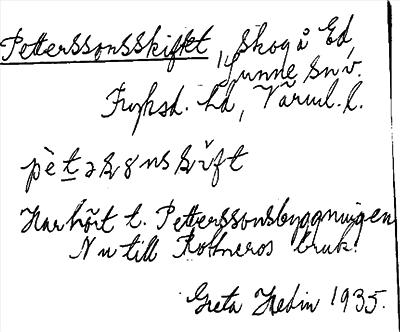 Petterssonsskiftet, skog å Ed,
Sunne sn v.
Fryksd. hd, Värml. l.
pètəsonsʃıft
Har hört t. Petterssonsbyggningen
Nu till Rottneros bruk.
Greta Hedin 1935.